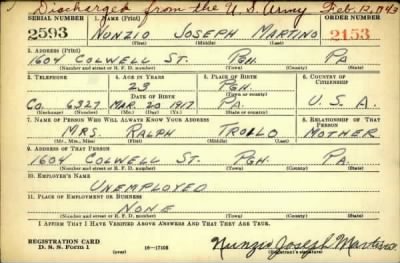 Discharged from the U.S. Army Feb. 12, 1943
SERIAL NUMBER 1. NAME (Print) ORDER NUMBER
2593 NUNZIO JOSEPH MARTINO 2153
(First) (Middle) (Last)
2. ADDRESS (Print)
1604 COLWELL ST. PGH. PA
(Number and street or R. F. D. number) (Town) (County) (State)
3. TELEPHONE 4. AGE IN YEARS 5. PLACE OF BIRTH 6. COUNTRY OF CITIZENSHIP
23 PGH.
DATE OF BIRTH (Town or county)
CO. 6327 MAR. 20 1917 PA. U. S. A.
(Exchange) (Number) (Mo.) (Day) (Yr.) (State or country)
7. NAME OF PERSON WHO WILL ALWAYS KNOW YOUR ADDRESS 8. RELATIONSHIP OF THAT PERSON
MRS. RALPH TROLLO MOTHER
(Mr., Mrs., Miss) (First) (Middle) (Last)
9. ADDRESS OF THAT PERSON
1604 COLWELL ST. PGH. PA.
(Number and street or R. F. D. number) (Town) (County) (State)
10. EMPLOYER'S NAME
UNEMPLOYED
11. PLACE OF EMPLOYMENT OR BUSINESS
NONE
(Number and street or R. F. D. number) (Town) (County) (State)
I AFFIRM THAT I HAVE VERIFIED ABOVE ANSWERS AND THAT THEY ARE TRUE.
REGISTRATION CARD
D. S. S. FORM 1 (over) 16-17105 Nunzio Joseph Martino
(Registrant's signature)